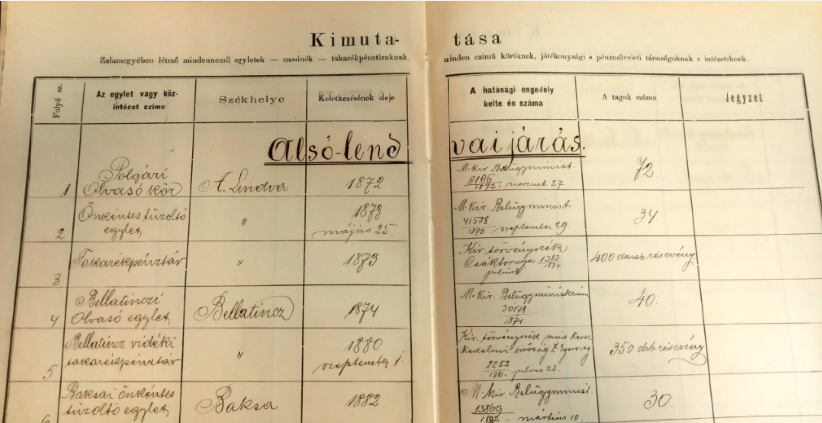 Kimuta-
tása
Zalamegyében létező mindennemű egyletek — cassinók — takarékpénztáraknak,
minden czimű köröknek, jótékonysági s pénzműveleti társaságoknak s intézeteknek.
Folyó sz.
Az egylet vagy köz-
intézet czime
Székhelye
Keletkezésének ideje
A hatósági engedély
kelte és száma
A tagok száma
Jegyzet
Alsó-lend
vai járás.
1
Polgári
Olvasó kör
A. Lendva
1872
M. kir Belügyminist
1872. novemt 27
72.
2
Önkéntes tüzoltó
egylet
"
1873
május 25.
M. kir. Belügyminist
41508
szeptember 29
34
3
Takarékpénztár
"
1873
Kir. törvényszék
Csáktornya
400 darab részvény
4
Bellatinczi
Olvasó egylet
Bellatincz
1874
M. kir. Belügyministerium
1874
40.
5
Bellatincz vidéki
takarékpénztár
"
1880
szeptember 1.
Kir. törvényszék mint Keres
kedelmi
350 drb részvény
6
Baksai önkéntes
tüzoltó egylet
Baksa
1882
M. kir Belügyminist.
13869
1882 - márczius 10.
30.